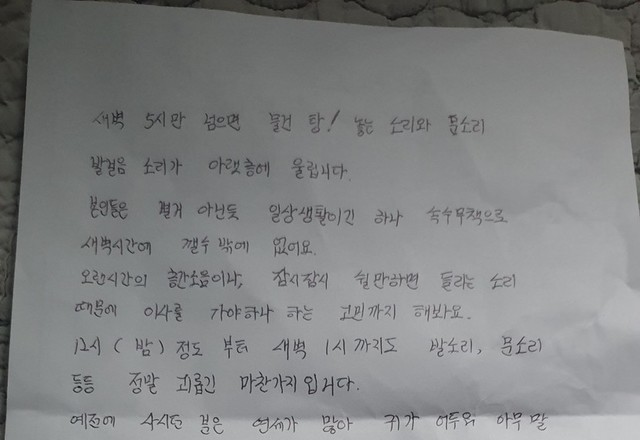 새벽 5시만 넘으면 물건 탕! 놓는 소리와 문소리
발걸음 소리가 아랫층에 울립니다.
본인들은 별거 아닌듯 일상생활이긴 하나 속수무책으로
새벽시간에 깰수 밖에 없어요.
오랜시간의 층간소음이나, 잠시잠시 쉴만하면 들리는 소리
때문에 이사를 가야하나 하는 고민까지 해봐요.
12시 (밤) 정도 부터 새벽 1시 까지도 발소리, 문소리
등등 정말 괴롭긴 마찬가지 입니다.
예전에 사시던 분은 연세가 많아 귀가 어두워 아무 말